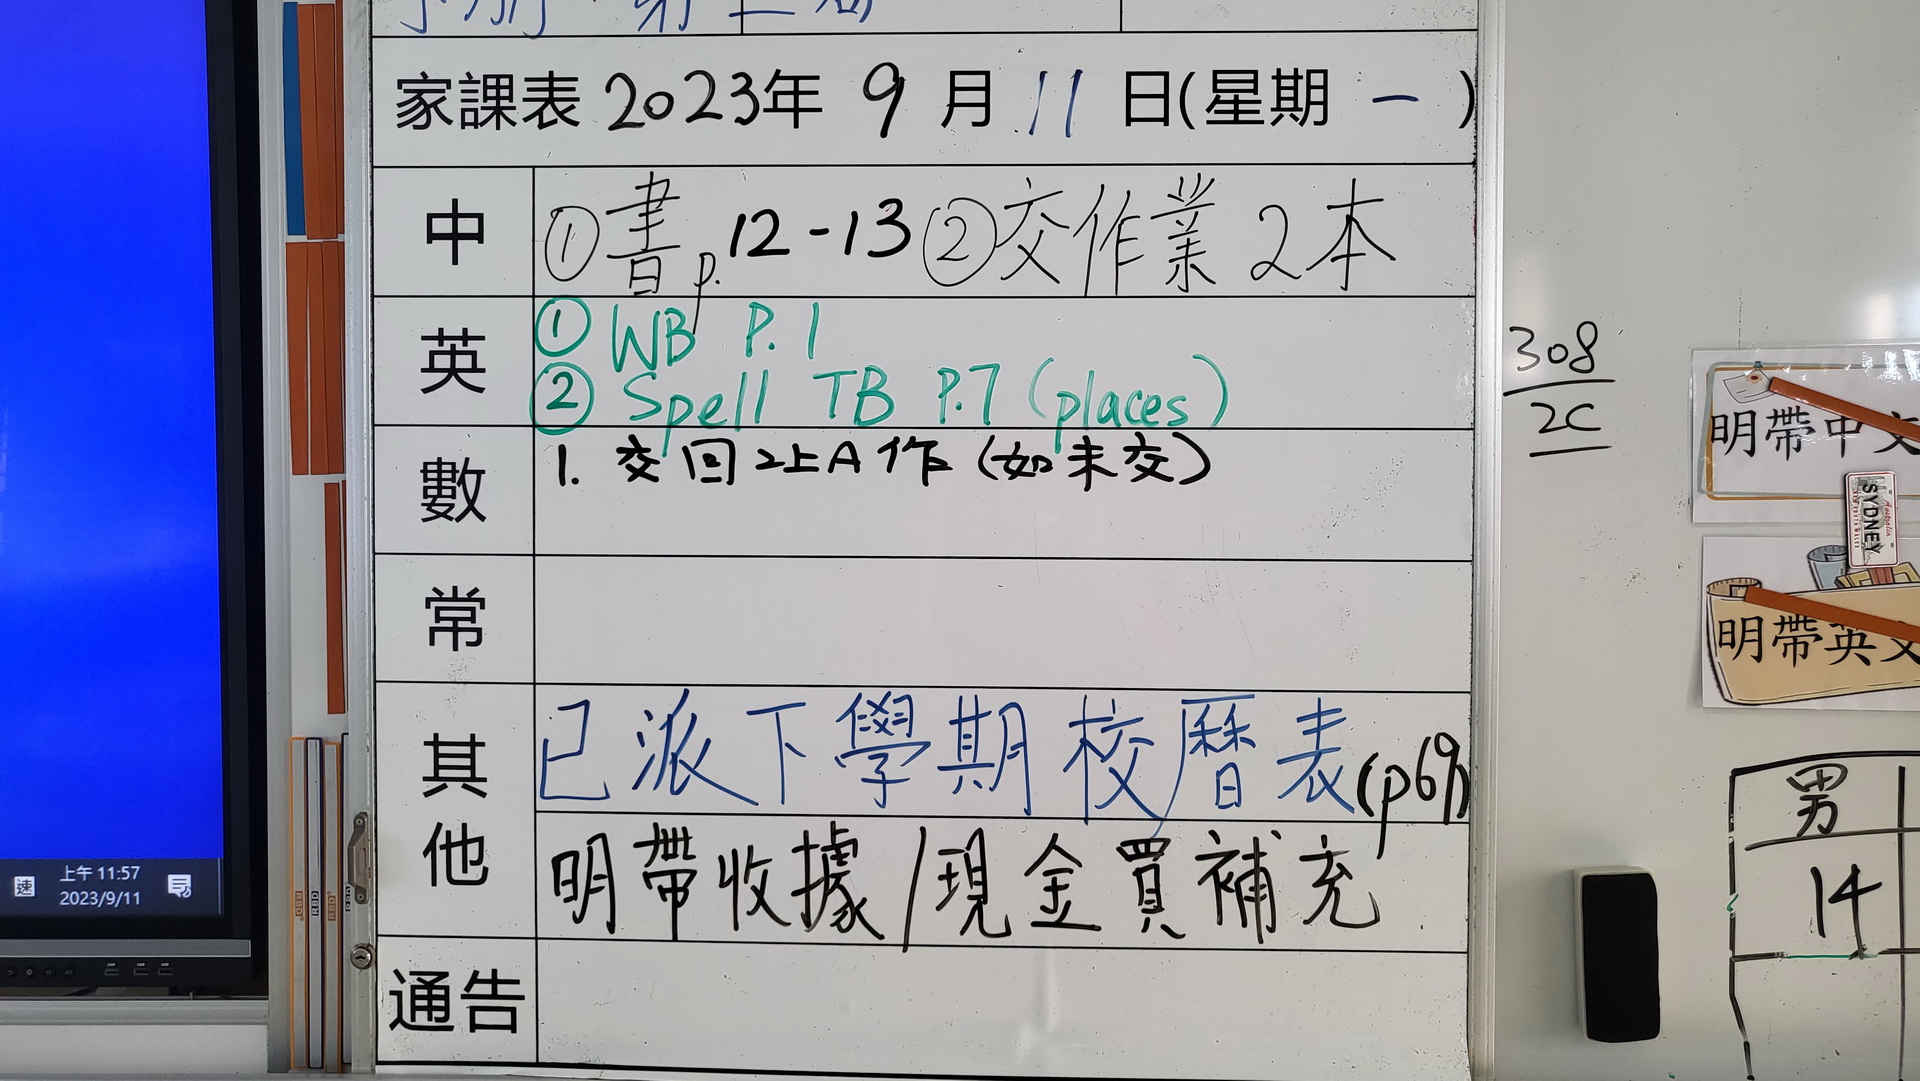 家課表 2023年 9 月 11 日(星期 一 )
中 ①書p.12-13 ②交作業2本
英 ① WB P.1
② Spell TB P.7 (places)
數 1. 交回2上A作 (如未交)
常
其他 已派下學期校曆表(p69)
明帶收據/現金買補充
通告
308
2C
明帶中文
SYDNEY
明帶英文
男
14
速 上午 11:57
2023/9/11